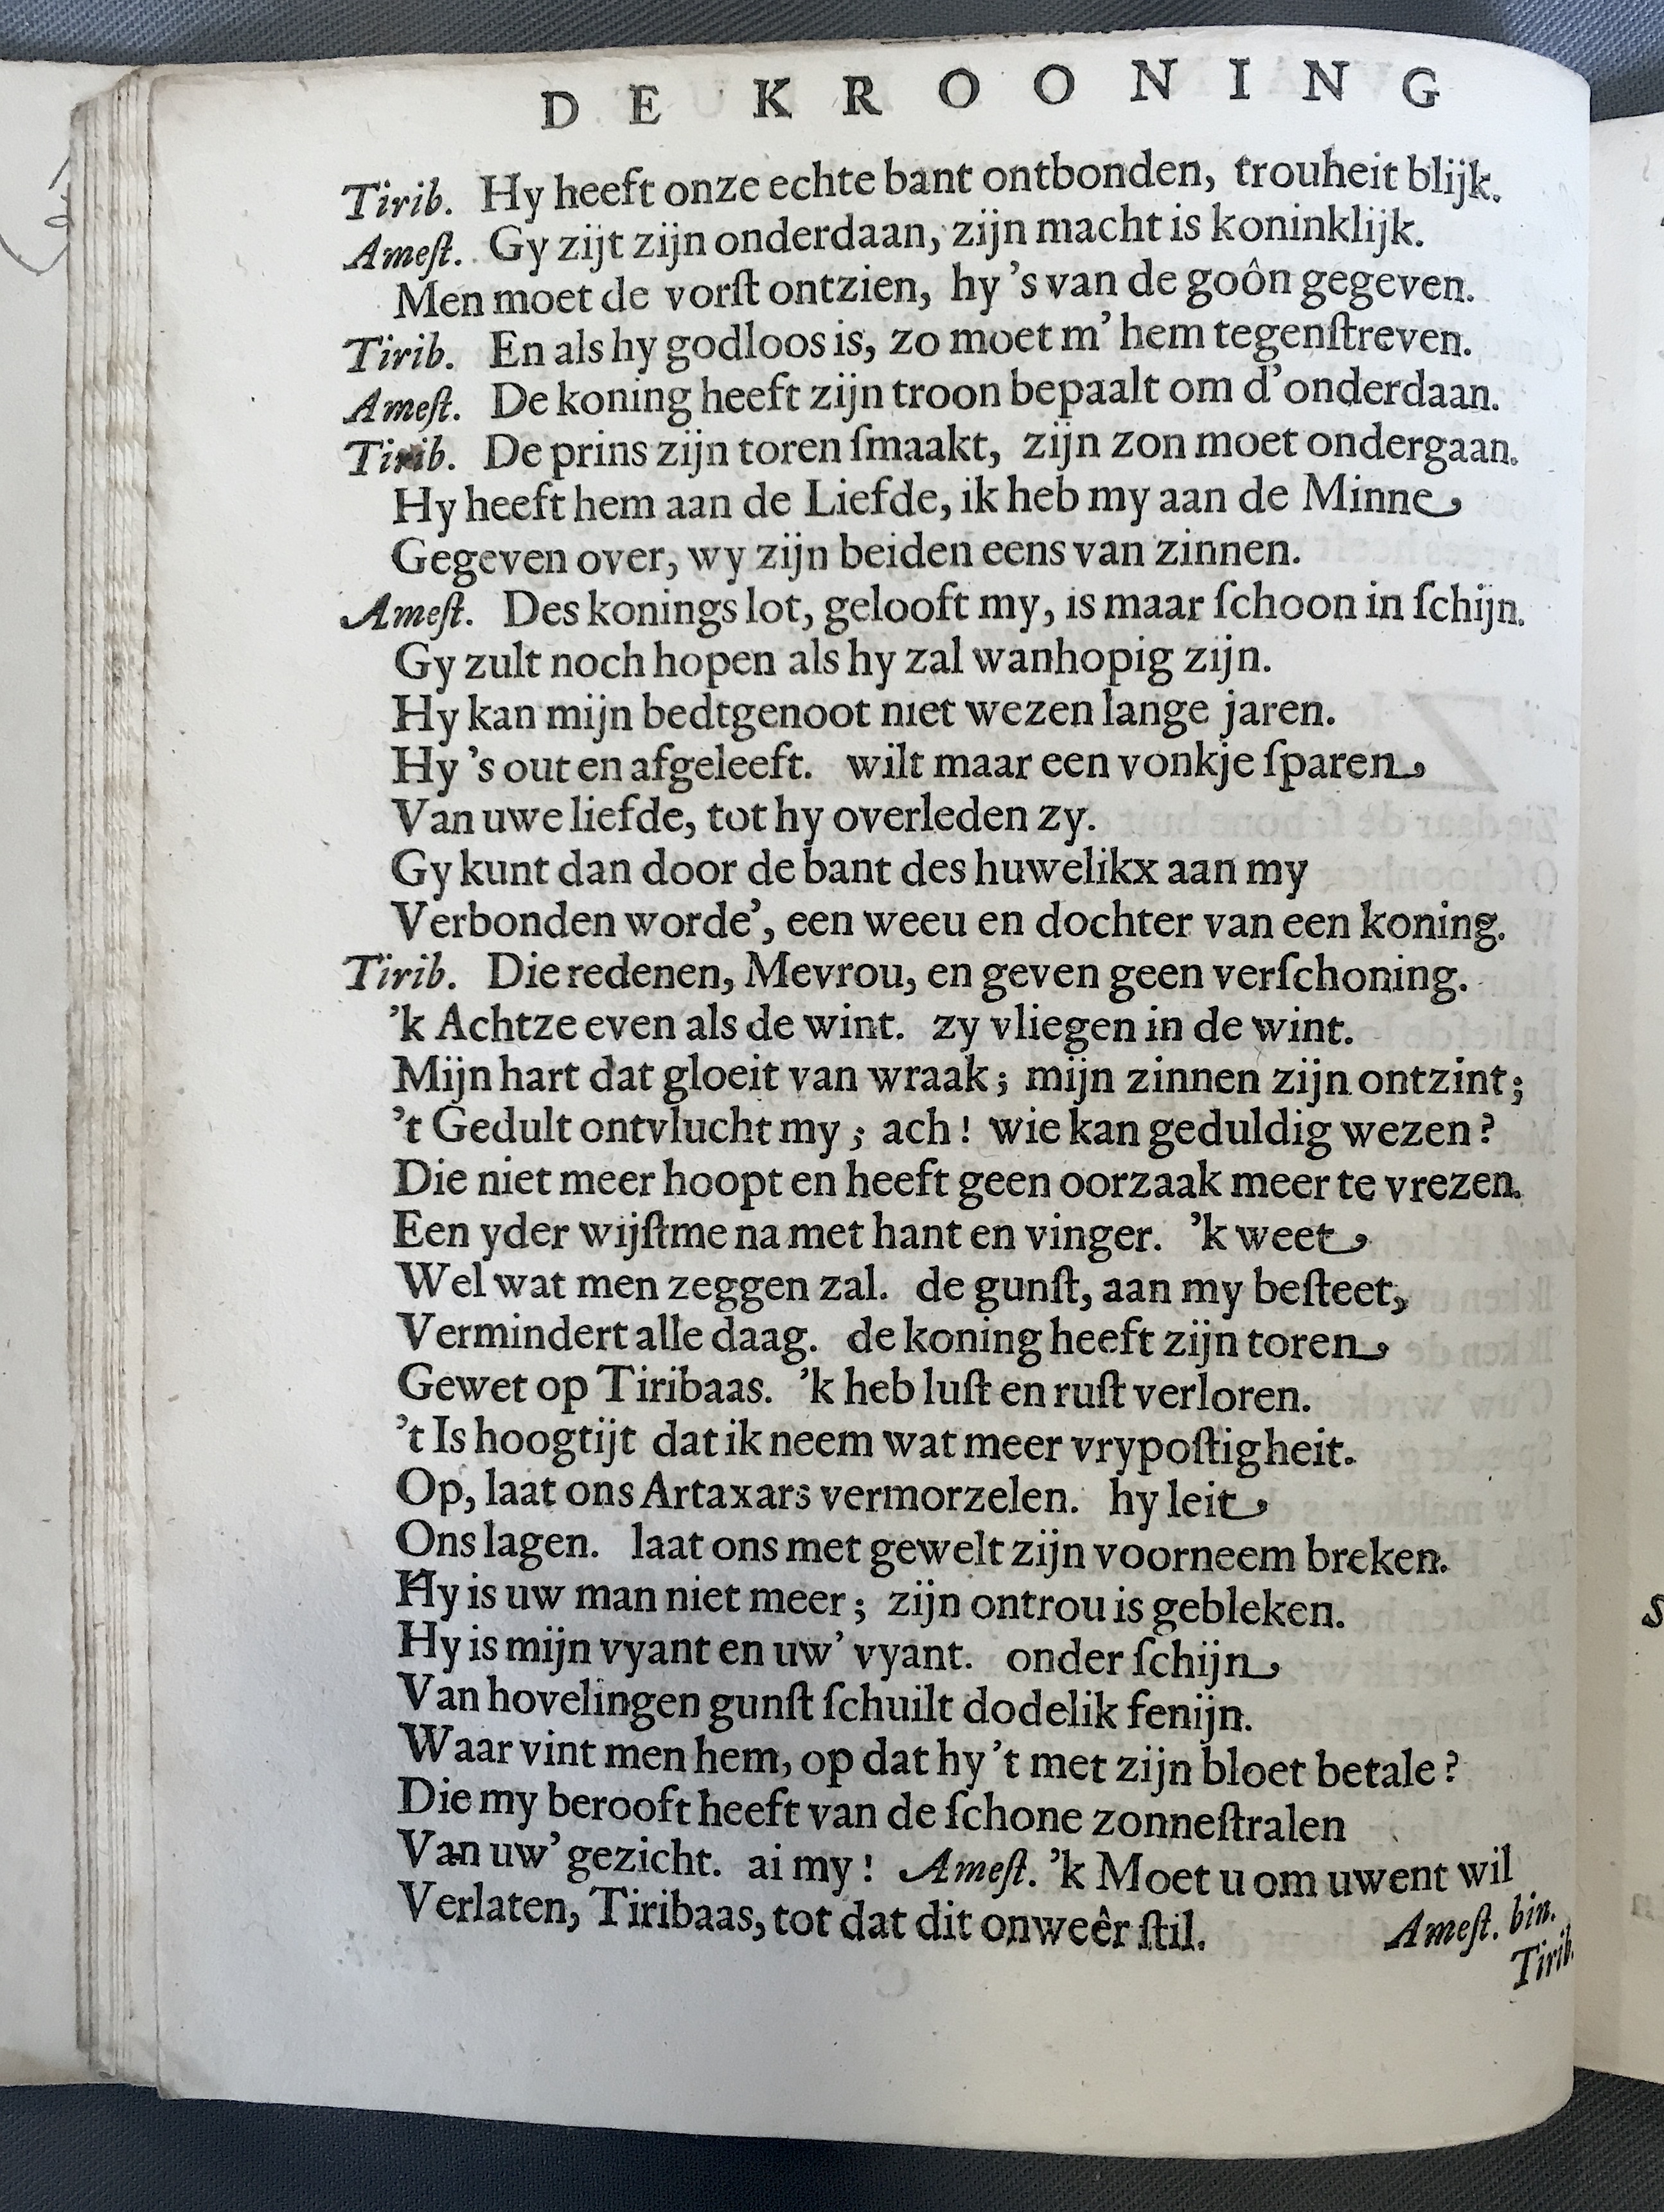 DE KROONING
Tirib. Hy heeft onze echte bant ontbonden, trouheit blijk.
Ameſt. Gy zijt zijn onderdaan, zijn macht is koninklijk.
Men moet de vorſt ontzien, hy 's van de goôn gegeven.
Tirib. En als hy godloos is, zo moet m' hem tegenſtreven.
Ameſt. De koning heeft zijn troon bepaalt om d'onderdaan.
Tirib. De prins zijn toren ſmaakt, zijn zon moet ondergaan.
Hy heeft hem aan de Liefde, ik heb my aan de Minne
Gegeven over, wy zijn beiden eens van zinnen.
Ameſt. Des konings lot, gelooft my, is maar ſchoon in ſchijn.
Gy zult noch hopen als hy zal wanhopig zijn.
Hy kan mijn bedtgenoot niet wezen lange jaren.
Hy 's out en afgeleeft. wilt maar een vonkje ſparen
Van uwe liefde, tot hy overleden zy.
Gy kunt dan door de bant des huwelikx aan my
Verbonden worde', een weeu en dochter van een koning.
Tirib. Die redenen, Mevrou, en geven geen verſchoning.
'k Achtze even als de wint. zy vliegen in de wint.
Mijn hart dat gloeit van wraak; mijn zinnen zijn ontzint;
't Gedult ontvlucht my; ach! wie kan geduldig wezen?
Die niet meer hoopt en heeft geen oorzaak meer te vrezen.
Een yder wijſtme na met hant en vinger. 'k weet
Wel wat men zeggen zal. de gunſt, aan my beſteet,
Vermindert alle daag. de koning heeft zijn toren
Gewet op Tiribaas. 'k heb luſt en ruſt verloren.
't Is hoogtijt dat ik neem wat meer vrypoſtigheit.
Op, laat ons Artaxars vermorzelen. hy leit
Ons lagen. laat ons met gewelt zijn voorneem breken.
Hy is uw man niet meer; zijn ontrou is gebleken.
Hy is mijn vyant en uw' vyant. onder ſchijn
Van hovelingen gunſt ſchuilt dodelik fenijn.
Waar vint men hem, op dat hy 't met zijn bloet betale?
Die my berooft heeft van de ſchone zonneſtralen
Van uw' gezicht. ai my! Ameſt. 'k Moet u om uwent wil
Verlaten, Tiribaas, tot dat dit onweêr ſtil. Ameſt. bin.
Tirib.